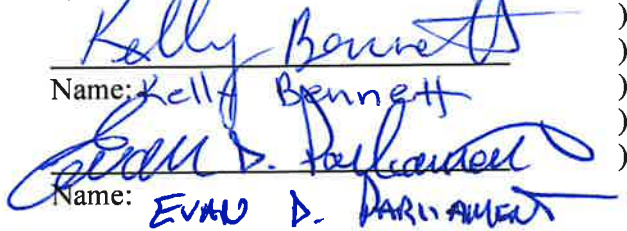 Kelly Bennett )
)
Name: Kelly Bennett )
)
Evan D. Parliament )
Name: EVAN D. PARLIAMENT